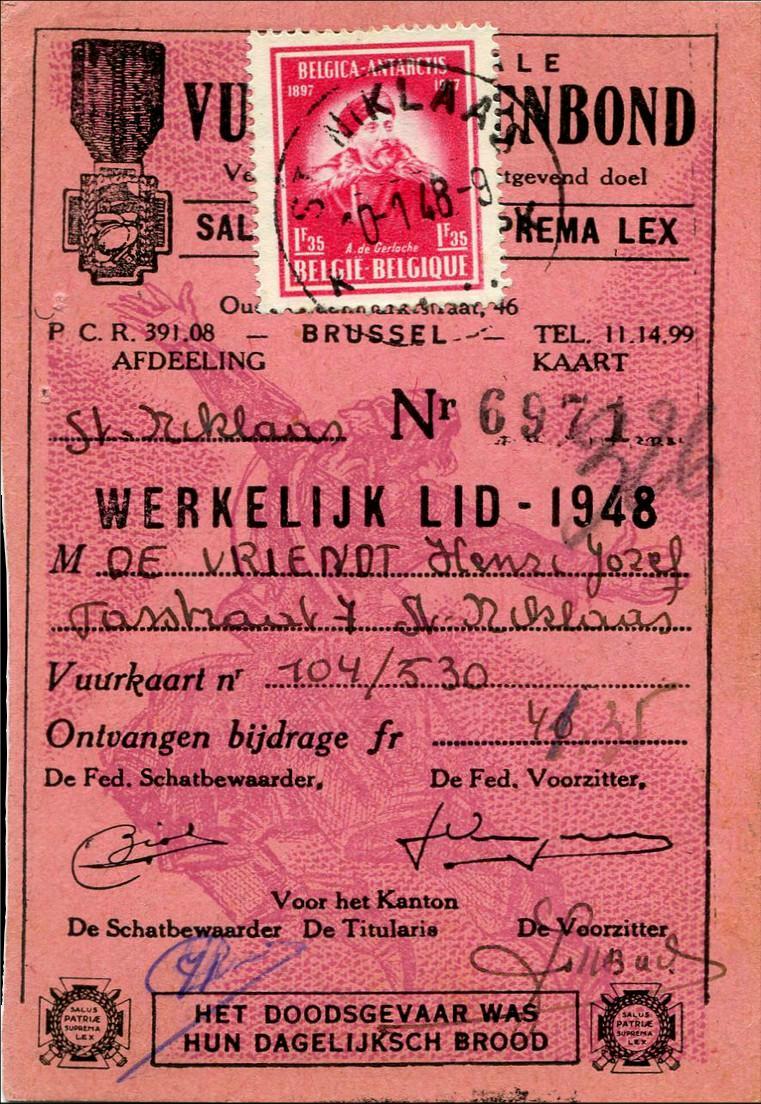 BELGICA-ANTARCTIS
1897
ST NIKLAAS
0-1 48-9
1F35
A. de Gerlache
1F35
BELGIË-BELGIQUE
K
ALE
VU ENBOND
Ve tgevend doel
SAL PREMA LEX
straat, 46
P. C. R. 391.08 — BRUSSEL — TEL. 11.14.99
AFDEELING KAART
St. Niklaas Nr 6971
326
WERKELIJK LID - 1948
M DE VRIENDT Henri Jozef
Tasstraat 7 St-Niklaas
Vuurkaart nr 104/530
Ontvangen bijdrage fr 35
De Fed. Schatbewaarder, De Fed. Voorzitter,
Voor het Kanton
De Schatbewaarder De Titularis De Voorzitter
SALUS
PATRIÆ
SUPREMA
LEX
HET DOODSGEVAAR WAS
HUN DAGELIJKSCH BROOD
SALUS
PATRIÆ
SUPREMA
LEX